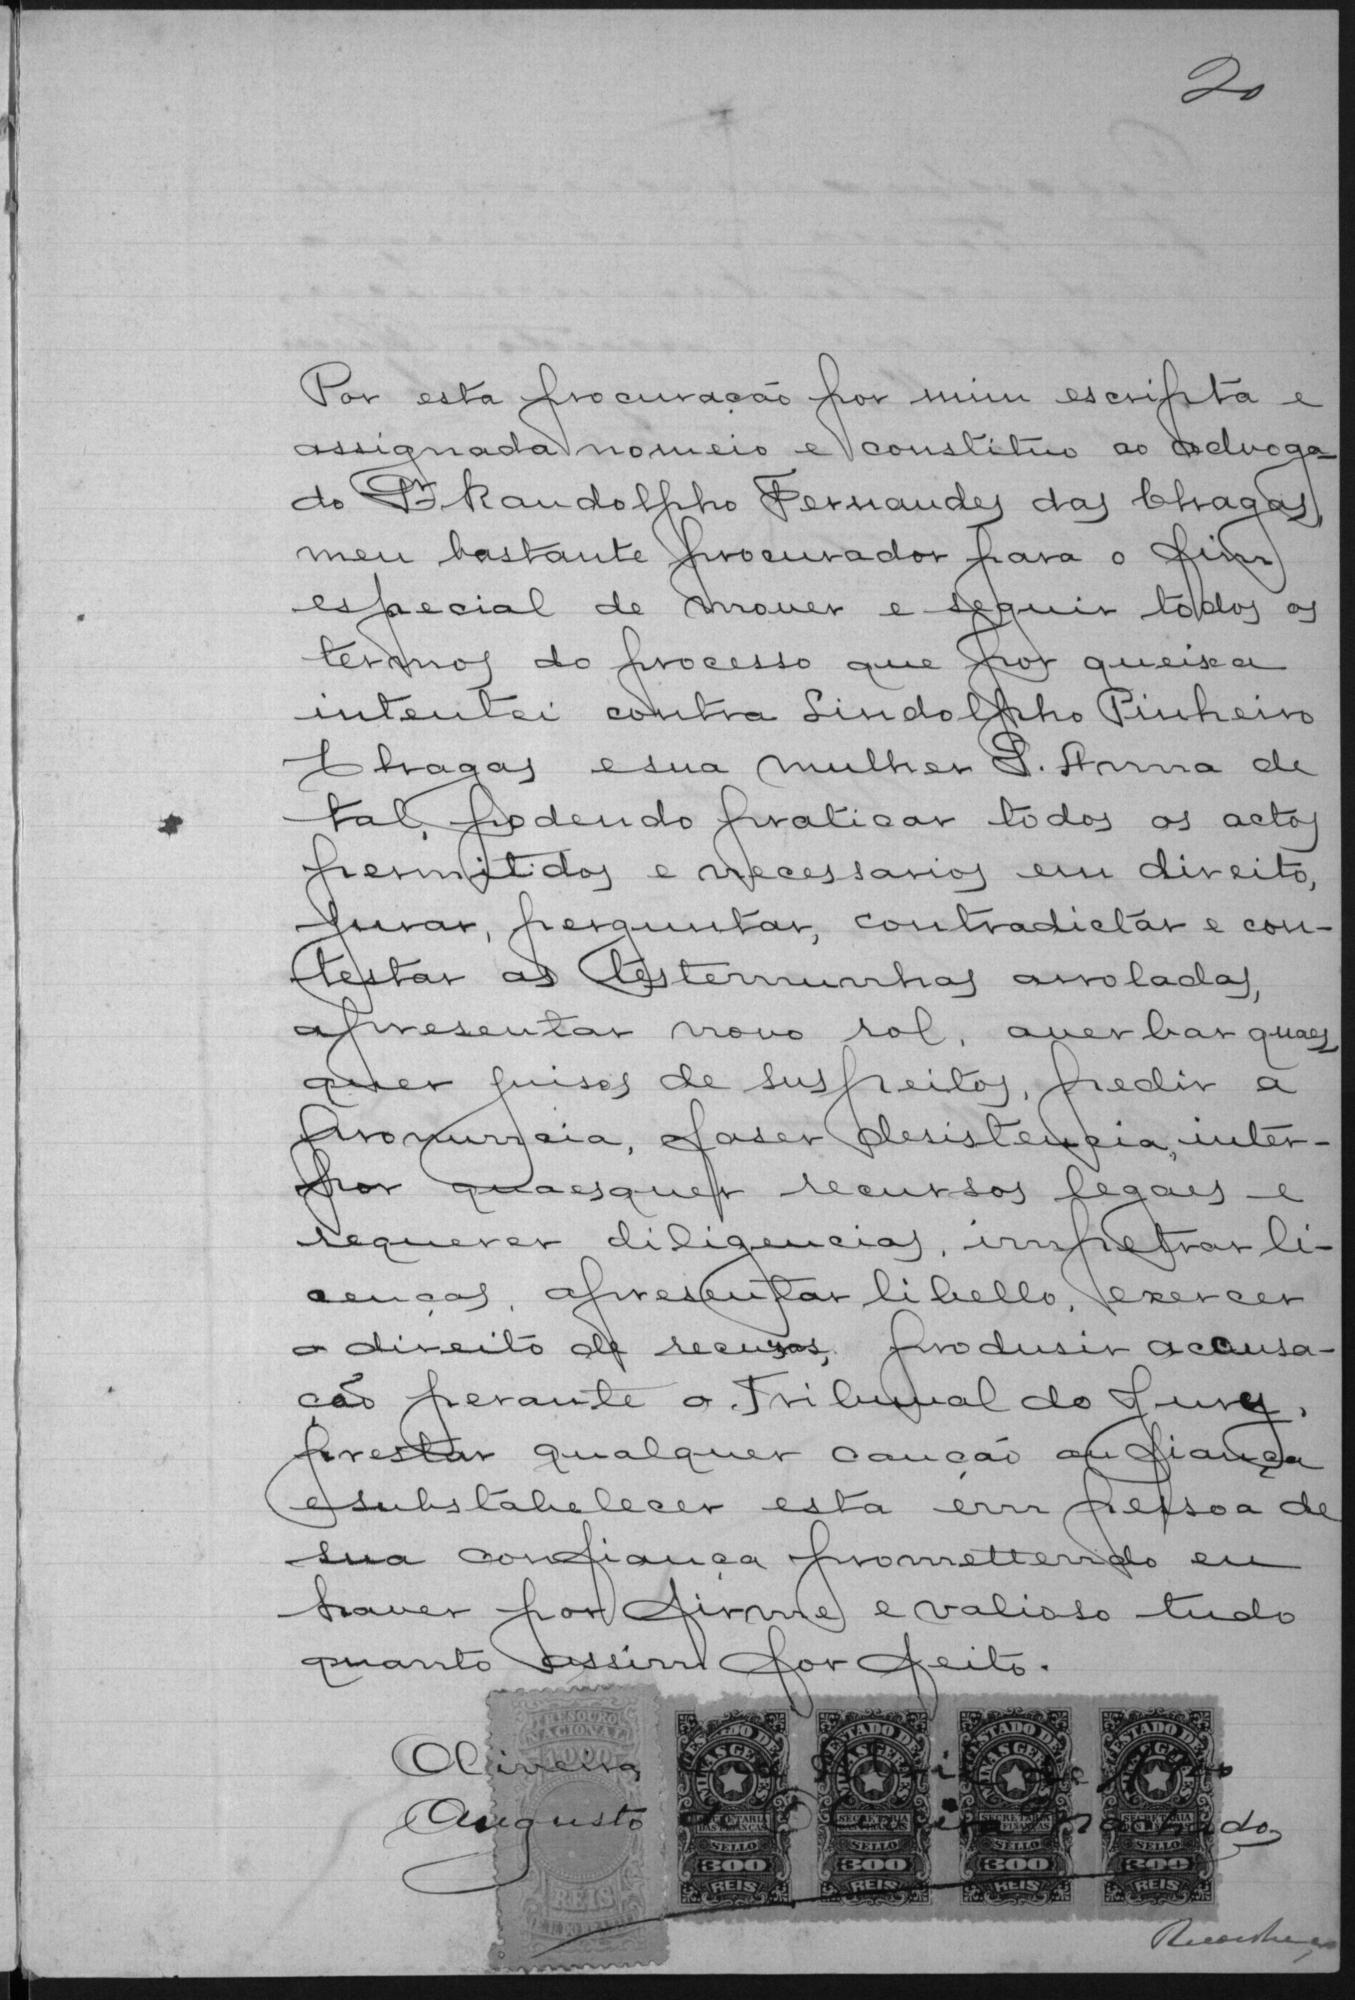 20
Por esta procuração por mim escripta e
assignada nomeio e constituo ao advoga-
do Dr Randolpho Fernandes das Chagas,
meu bastante procurador para o fim
especial de mover e seguir todos os
termos do processo que por queixa
intentei contra Lindolpho Pinheiro
Chagas e sua mulher D. Anna de
tal, podendo praticar todos os actos
permittidos e necessarios em direito,
jurar, perguntar, contradictar e con-
testar as testemunhas arroladas,
apresentar novo rol, averbar quaes
quer juisos de suspeitos, pedir a
pronuncia, faser desistencia, inter-
por quaesquer recursos legaes e
requerer diligencias, impetrar li-
cenças, apresentar libello, exercer
o direito de recusas, produsir accusa-
ção perante o Tribunal do Jury,
prestar qualquer caução ou fiança
e substabelecer esta em pessoa de
sua confiança promettendo eu
haver por firme e valioso tudo
quanto assim for feito.
THESOURO NACIONAL 1000 REIS
ESTADO DE MINAS GERAES SECRETARIA DAS FINANÇAS SELLO 300 REIS
ESTADO DE MINAS GERAES SECRETARIA DAS FINANÇAS SELLO 300 REIS
ESTADO DE MINAS GERAES SECRETARIA DAS FINANÇAS SELLO 300 REIS
ESTADO DE MINAS GERAES SECRETARIA DAS FINANÇAS SELLO 300 REIS
Oliveira, de
Augusto de Oliveira Machado
Reconheço